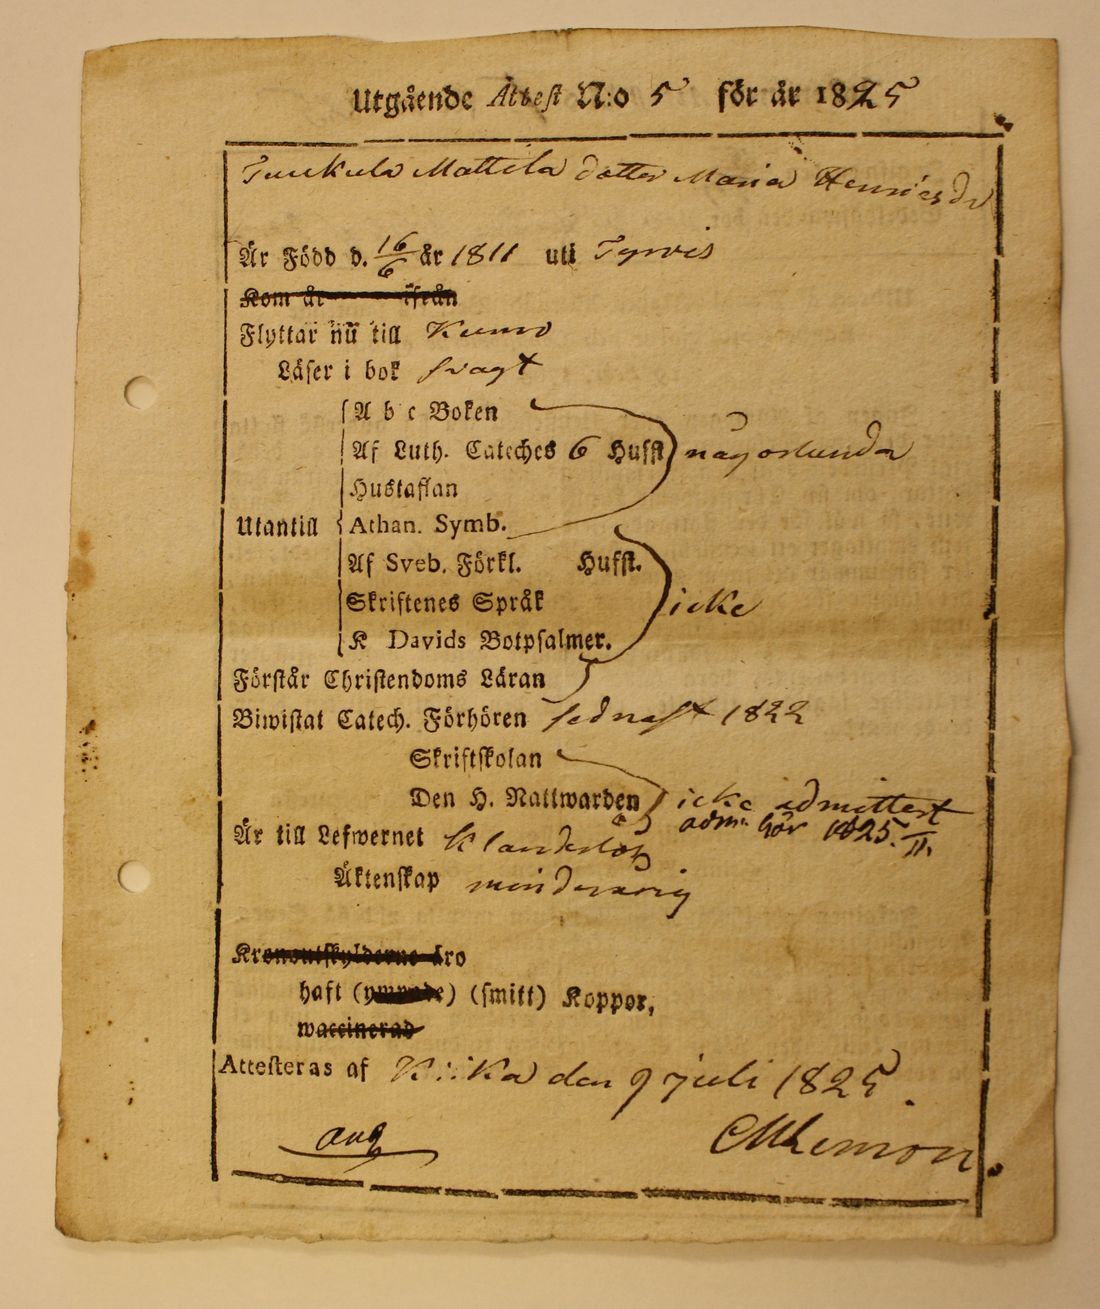 Utgående Attest N:o 5 för år 1825
Mattila dotter Maria Henricsdr
Är Född d. 16/6 år 1811 uti Tyrvis
Kom år ifrån
Flyttar nu till Kumo
Läser i bok svagt
A b c Boken
Af Luth. Cateches 6 Hufst någorlunda
Hustaflan
Utantill Athan. Symb.
Af Sveb. Förkl. Hufst.
Skriftenes Språk icke
K Davids Botpsalmer.
Förstår Christendoms Läran
Biwistat Catech. Förhören sednast 1822
Skriftskolan
Den H. Nattwarden icke admittert
adm. här 1825.
Är till Lefwernet Klanderlös
Äktenskap minderårig
Kronoutskylderne äro
haft (ympade) (smitt) Koppor,
waccinerad
Attesteras af Kiika den 9 juli 1825.